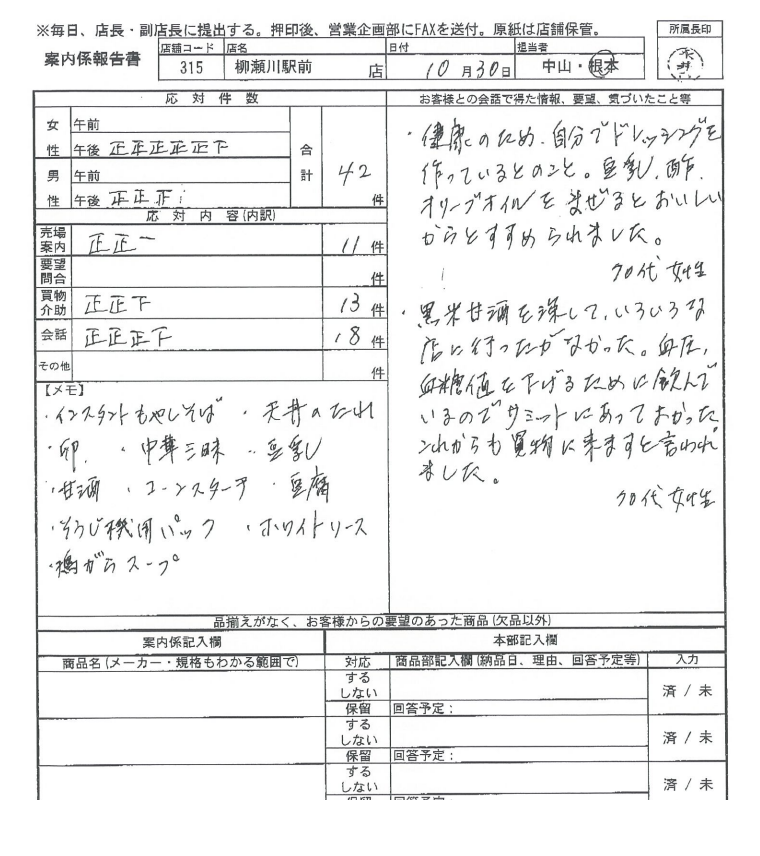 ※毎日、店長・副店長に提出する。押印後、営業企画部にFAXを送付。原紙は店舗保管。
所属長印
案内係報告書
店舗コード 店名 日付 担当者
315 柳瀬川駅前 店 10月30日 中山・根本
応対件数
お客様との会話で得た情報、要望、気づいたこと等
女性 午前
午後 正正正正正下
男性 午前
午後 正正正
合計 42 件
応対内容(内訳)
売場案内 正正一 11件
要望問合 件
買物介助 正正下 13件
会話 正正正下 18件
その他 件
【メモ】
・インスタントもやしそば ・天丼のたれ
・卵 ・中華三昧 ・豆乳
・甘酒 ・コーンスターチ ・豆腐
・そうじ機用パック ・ホワイトリース
・鶏がらスープ
・健康のため、自分でドレッシングを
作っているとのこと。豆乳、酢、
オリーブオイルを混ぜるとおいしい
からとすすめられました。
70代 女性
・黒米甘酒を探して、いろいろな
店に行ったがなかった。血圧、
血糖値を下げるために飲んで
いるのでサミットにあってよかった
これからも買物に来ますと言われ
ました。
70代 女性
品揃えがなく、お客様からの要望のあった商品(欠品以外)
案内係記入欄 本部記入欄
商品名(メーカー・規格もわかる範囲で) 対応 商品部記入欄(納品日、理由、回答予定等) 入力
する
しない 済 / 未
保留 回答予定：
する
しない 済 / 未
保留 回答予定：
する
しない 済 / 未